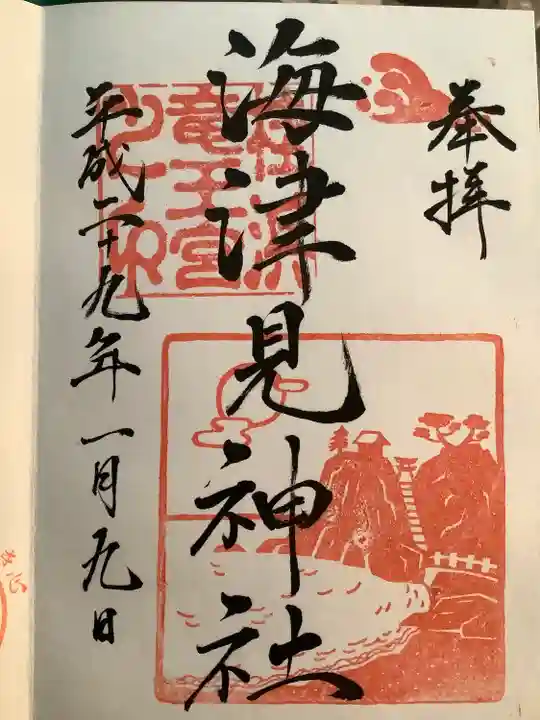 奉拝
海津見神社
平成二十九年一月九日
竜王宮